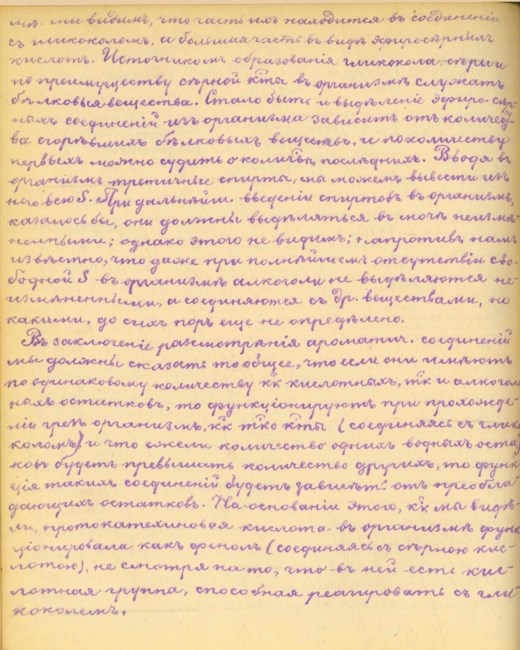 мъ мы видимъ, что часть ихъ находится въ соединеніи
съ гликоколомъ, а большая часть въ видѣ эфиросѣрныхъ
кислотъ. Источникомъ образованія гликокола сѣры и
по преимуществу сѣрной к'ты въ организмѣ служатъ
бѣлковыя вещества. Стало быть и выдѣленіе эфиро-сѣр-
ныхъ соединеній изъ организма зависитъ отъ количес-
ва сгорѣвшихъ бѣлковыхъ веществъ, и по количеству
первыхъ можно судить о колич'вѣ послѣднихъ. Вводя въ
организмъ третичные спирты, мы можемъ вывести изъ
него всю S. При дальнѣйш. введеніи спиртовъ въ организмъ,
казалось бы, они должны выдѣляться въ мочѣ неизмѣ-
ненными; однако этого не видимъ; напротивъ намъ
извѣстно, что даже при полнѣйшемъ отсутствіи сво-
бодной S въ организмѣ алкоголи не выдѣляются не-
измѣненными, а соединяются съ др. веществами, но
какими, до сихъ поръ еще не опредѣлено.
Въ заключеніе разсмотрѣнія ароматич. соединеній
мы должны сказать то общее, что если они имѣютъ
по одинаковому количеству к'къ кислотныхъ, т'къ и алкоголь-
ныхъ остатковъ, то функціонируютъ при прохожде-
ніи чрезъ организмъ, к'къ т'ко к'ты (соединяясь съ глико-
коломъ) и что ежели количество однихъ водныхъ остат-
ковъ будетъ превышать количество другихъ, то функ-
ція такихъ соединеній будетъ зависѣть отъ преобла-
дающихъ остатковъ. На основаніи этого, к'къ мы видѣ-
ли, протокатехиновая кислота въ организмѣ функ-
ціонировала какъ фенолъ (соединяясь съ сѣрною кис-
лотою), не смотря на то, что въ ней есть кис-
лотная группа, способная реагировать съ гли-
коколемъ.